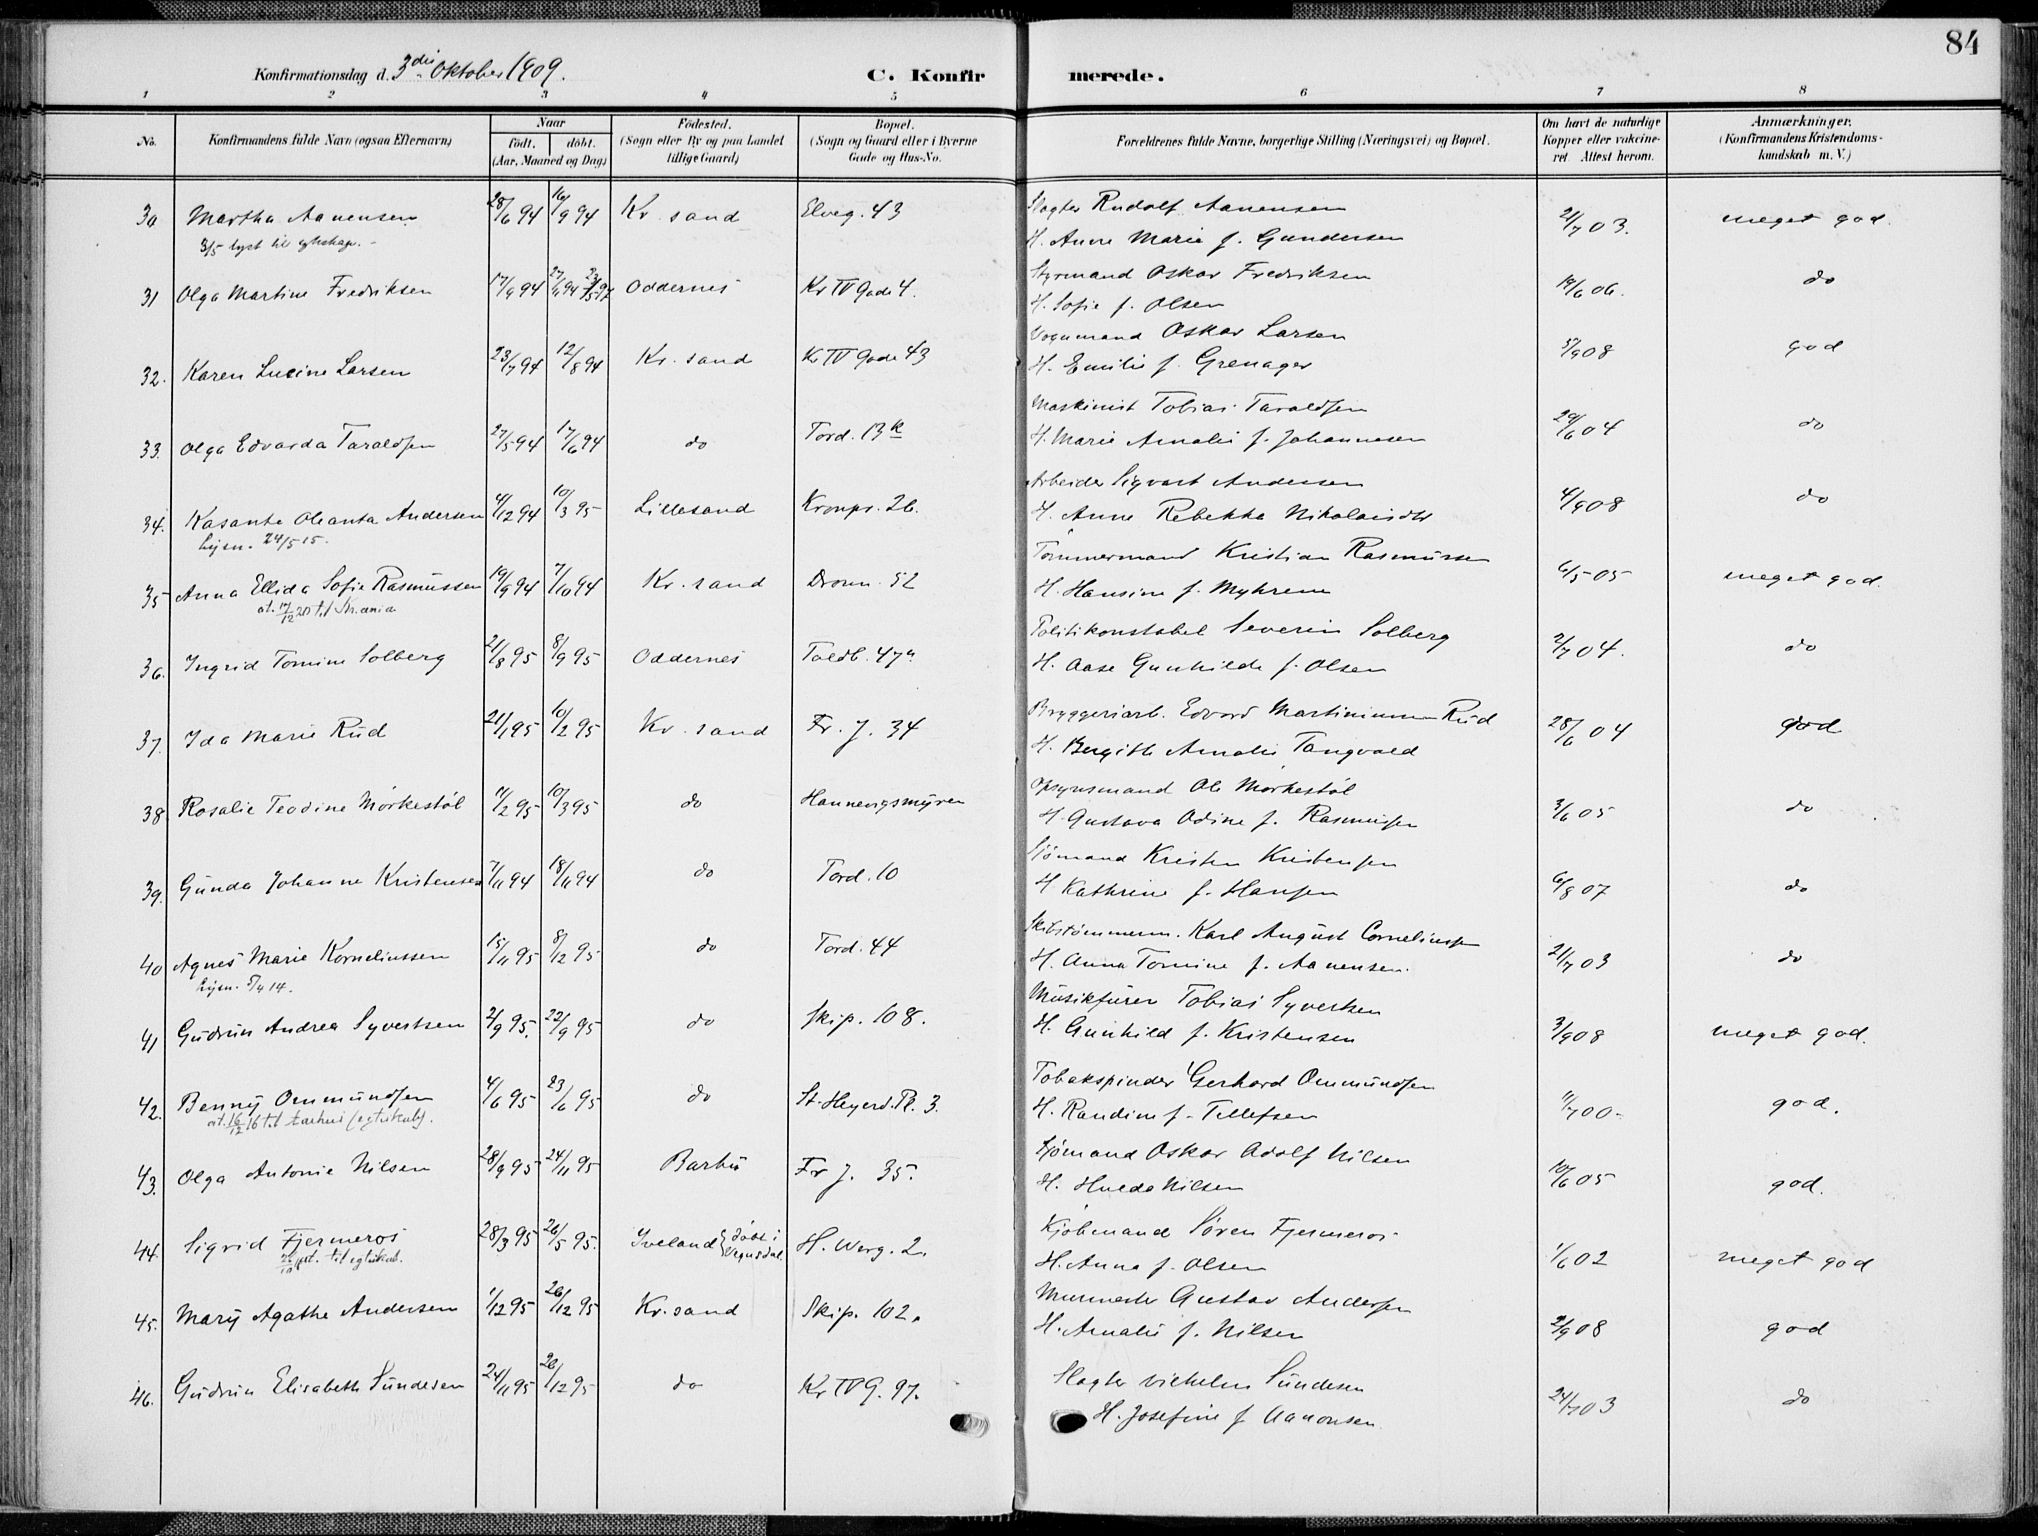 84
Konfirmationsdag d. 3die Oktober 1909. C. Konfirmerede.
1 2 3 4 5 6 7 8
No. Konfirmandens fulde Navn (ogsaa Efternavn) Naar födt. döbt. (Aar, Maaned og Dag) Födested. (Sogn eller By og paa Landet tillige Gaard) Bopæl. (Sogn og Gaard eller i Byerne Gade og Hus-No. Forældrenes fulde Navne, borgerlige Stilling (Næringsvei) og Bopæl. Om havt de naturlige Kopper eller vaccineret. Attest herom. Anmærkninger. (Konfirmandens Kristendomskundskab m. V.)
30 Martha Aanensen 28/6 94 16/9 94 Kr. sand Elveg. 43 Slagter Rudolf Aanensen 21/7 03. meget god.
3/5 lyst til egteskap. - H. Anne Marie f. Gundersen
31 Olga Martine Fredriksen 17/9 94 27/11 94 Oddernes Kr IV Gade 4. Styrmand Oskar Fredriksen 19/6 06. do
H. Sofie f. Olsen
32. Karen Lucine Larsen 23/7 94 12/8 94 Kr. sand Kr IV Gade 43 Vognmand Oskar Larsen 5/9 08 god
H. Emilie f. Grenager
33. Olga Edvarda Taraldsen 27/5 94 17/6 94 do Tord. 13 k Maskinist Tobias Taraldsen 29/6 04 do
H. Marie Amalie f. Johannesen
34. Kasanta Oleanta Andersen 4/12 94 10/3 95 Lillesand Kronpr. 26. Arbeider Sigvart Andersen 4/9 08 do
Lysn. 24/5 15. H. Anne Rebekka Nikolaisdtr
35 Anna Ellida Sofie Rasmussen 19/9 94 7/10 94 Kr. sand Dronn. 52 Tömmermand Kristian Rasmussen 6/5 05 meget god.
at. 17/12 20 til Kr.ania H. Hansine f. Myhren
36. Ingrid Tomine Solberg 21/8 95 8/9 95 Oddernes Toldb. 47a Politikonstabel Severin Solberg 2/7 04. do
H. Aase Gunhilde f. Olsen
37. Ida Marie Rud 21/1 95 10/2 95 Kr. sand Fr. J. 34 Bryggeriarb. Edvard Martiniussen Rud 28/6 04 god
H. Bergith Amalie Tangvald
38. Rosalie Teodine Mörkestöl 7/2 95 10/3 95 do Hannevigsmyren Opsynsmand Ole Mörkestöl 3/6 05 do
H. Gustava Odine f. Rasmussen
39. Gunda Johanne Kristensen 7/11 94 18/11 94 do Tord. 10 Sjömand Kristen Kristensen 6/8 07 do
H Kathrine f. Hansen
40 Agnes Marie Korneliussen 15/11 95 8/12 95 do Tord. 44 Skibstömmerm. Karl August Corneliussen 21/7 03 do
Lysn. 5/4 14. H. Anna Tomine f. Aanensen.
41 Gudrun Andrea Syvertsen 2/9 95. 22/9 95 do Skip. 108. Musikfürer Tobias Syvertsen 3/9 08 meget god.
H. Gunhild f. Kristensen
42. Benny Ommundsen 4/6 95 23/6 95 do St. Heyerd. Pl. 3. Tobakspinder Gerhard Ommundsen 11/7 00. god.
at. 16/12 16 til Aarhus (egteskab). H. Randine f. Tellefsen
43. Olga Antonie Nilsen 28/9 95 24/11 95 Barbu Fr J. 35. Sjömand Oskar Adolf Nilsen 10/6 05 god.
H. Hulda Nilsen
44. Sigrid Fjermeros 28/3 95 26/5 95. Iveland (döbt i Vegusdal H. Werg. 2. Kjöbmand Sören Fjermeros 1/6 02 meget god
at. til egteskab. H. Anna f. Olsen
45. Mary Agathe Andersen 1/12 95 26/12 95 Kr. sand Skip. 102. Murmester Gustav Andersen 2/9 08 god
H. Amalie f. Nilsen
46. Gudrun Elisabeth Sundesen 24/11 95 26/12 95 do Kr IV G. 97. Slagter Vilhelm Sundesen 24/7 03 do
H. Josefine f Aanonsen